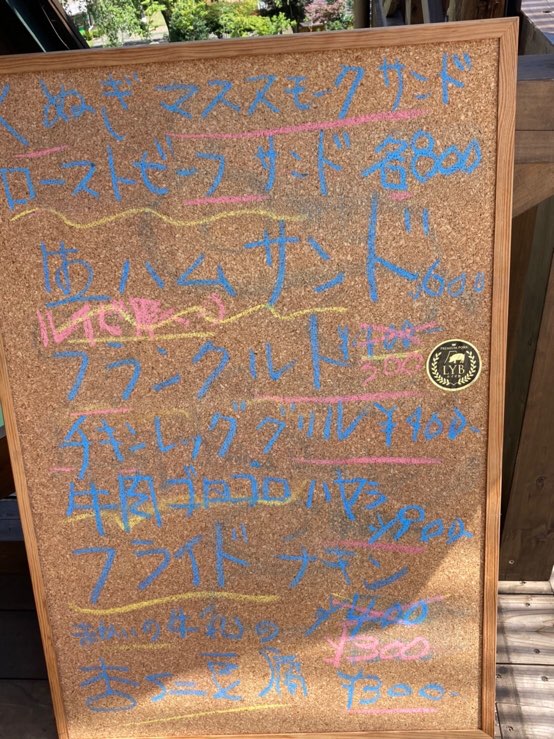 くぬぎ マススモークサンド
ローストビーフ サンド 各800
生ハムサンド 600
フランクルト
500
PREMIUM PORK
LYB
チキンレッググリル ¥400-
牛肉ゴロゴロ ハヤシ ¥900-
フライドチキン
¥400
¥300
牛乳の
杏仁豆腐 ¥300-